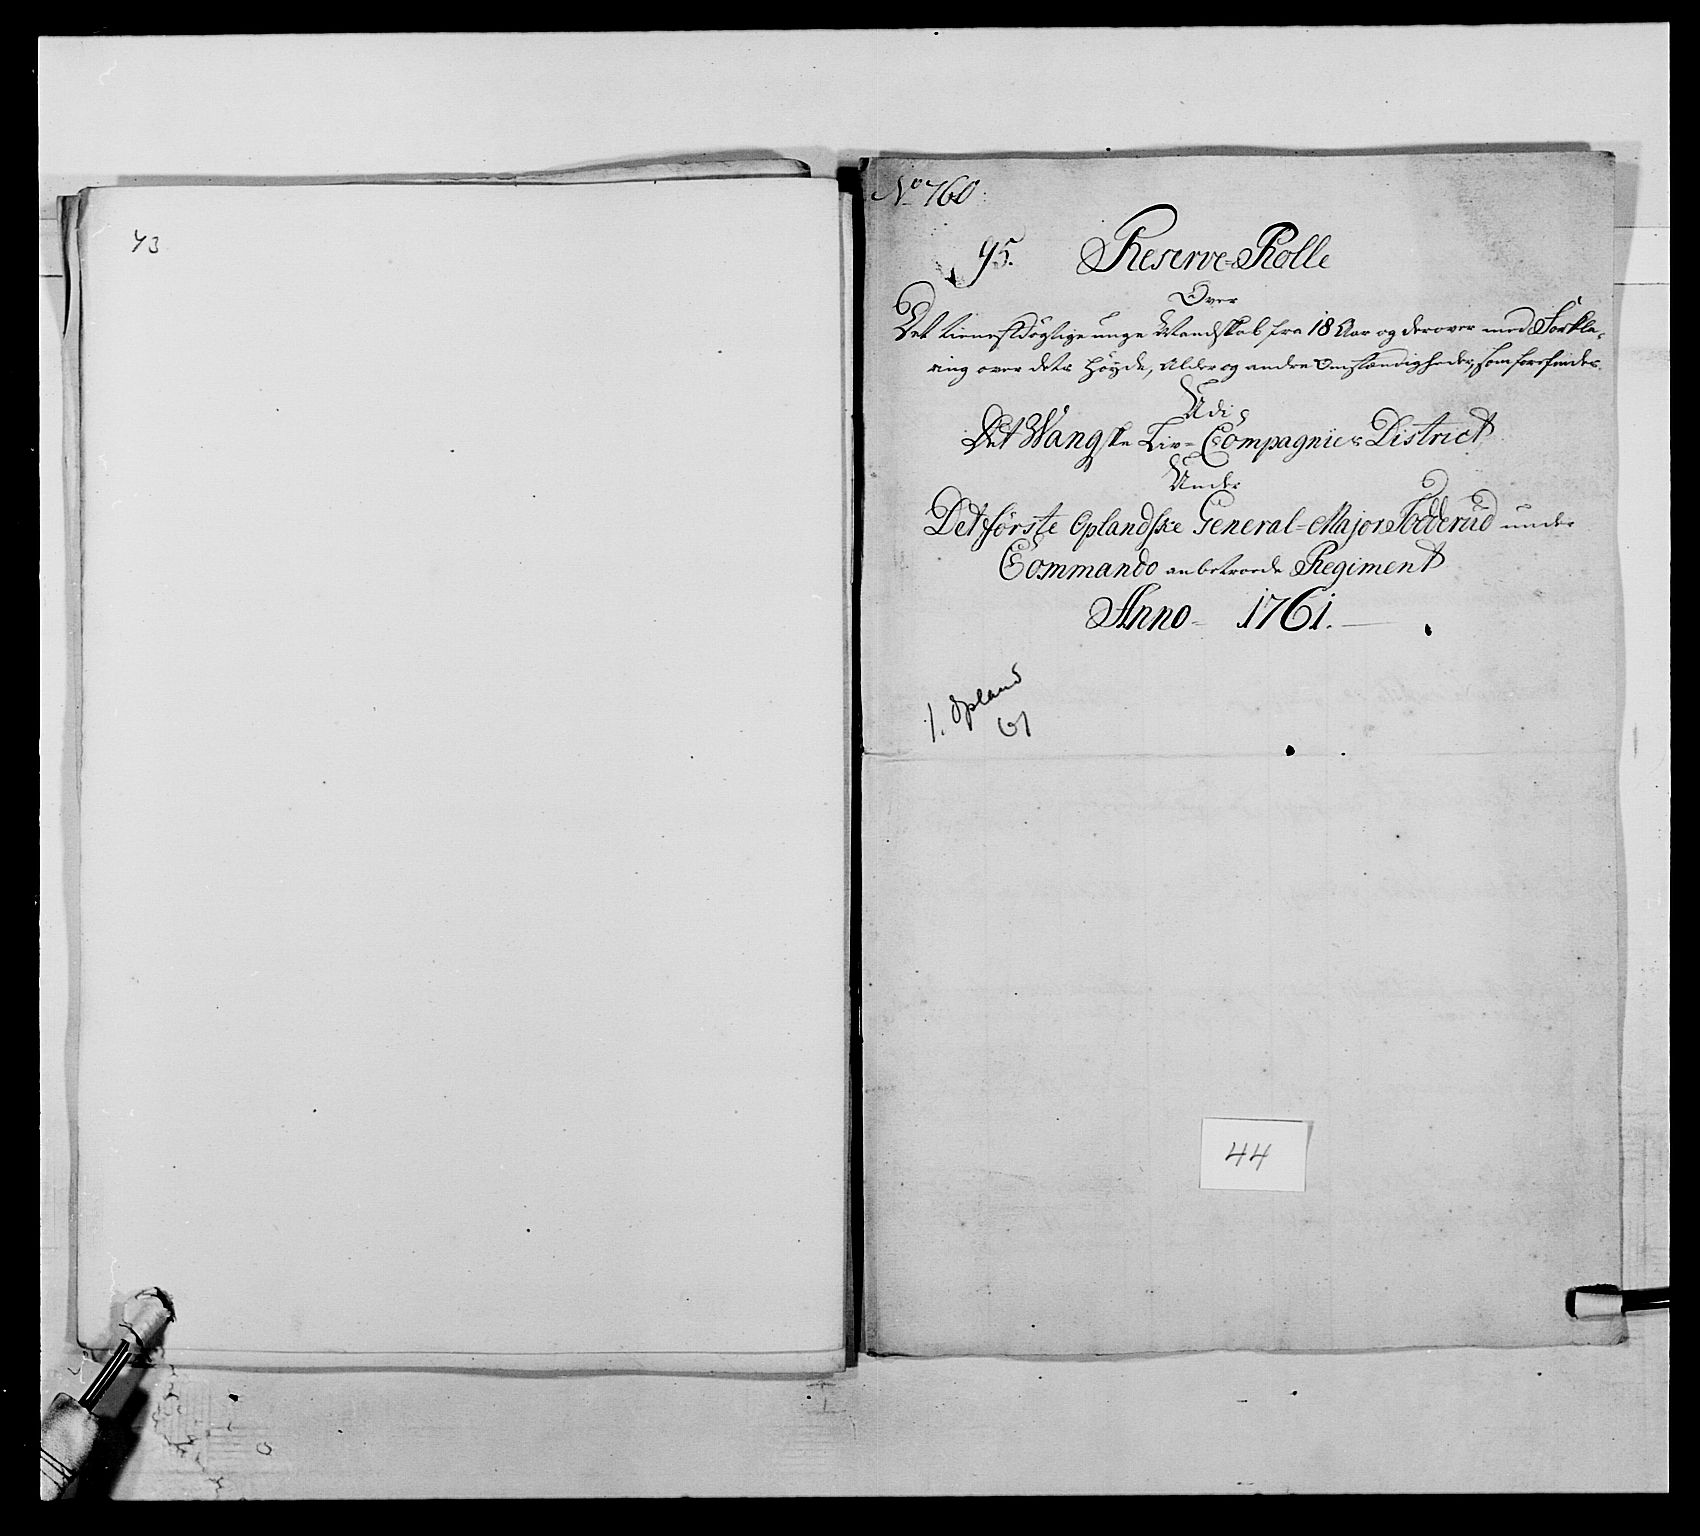 43
No 760
95. Reserve-Rolle
Over
Det tienestdögtige unge Mandskab fra 18 Aar og derover med Forkla-
ring over dets Höyde, Alder og andre Omstændigheder, som forefindes
Udi
Det Wangske Liv-Compagnies District
Under
Det første Oplandske General-Major Todderud under
Commando anbetroede Regiment
Anno 1761.
1. Opland
61
44